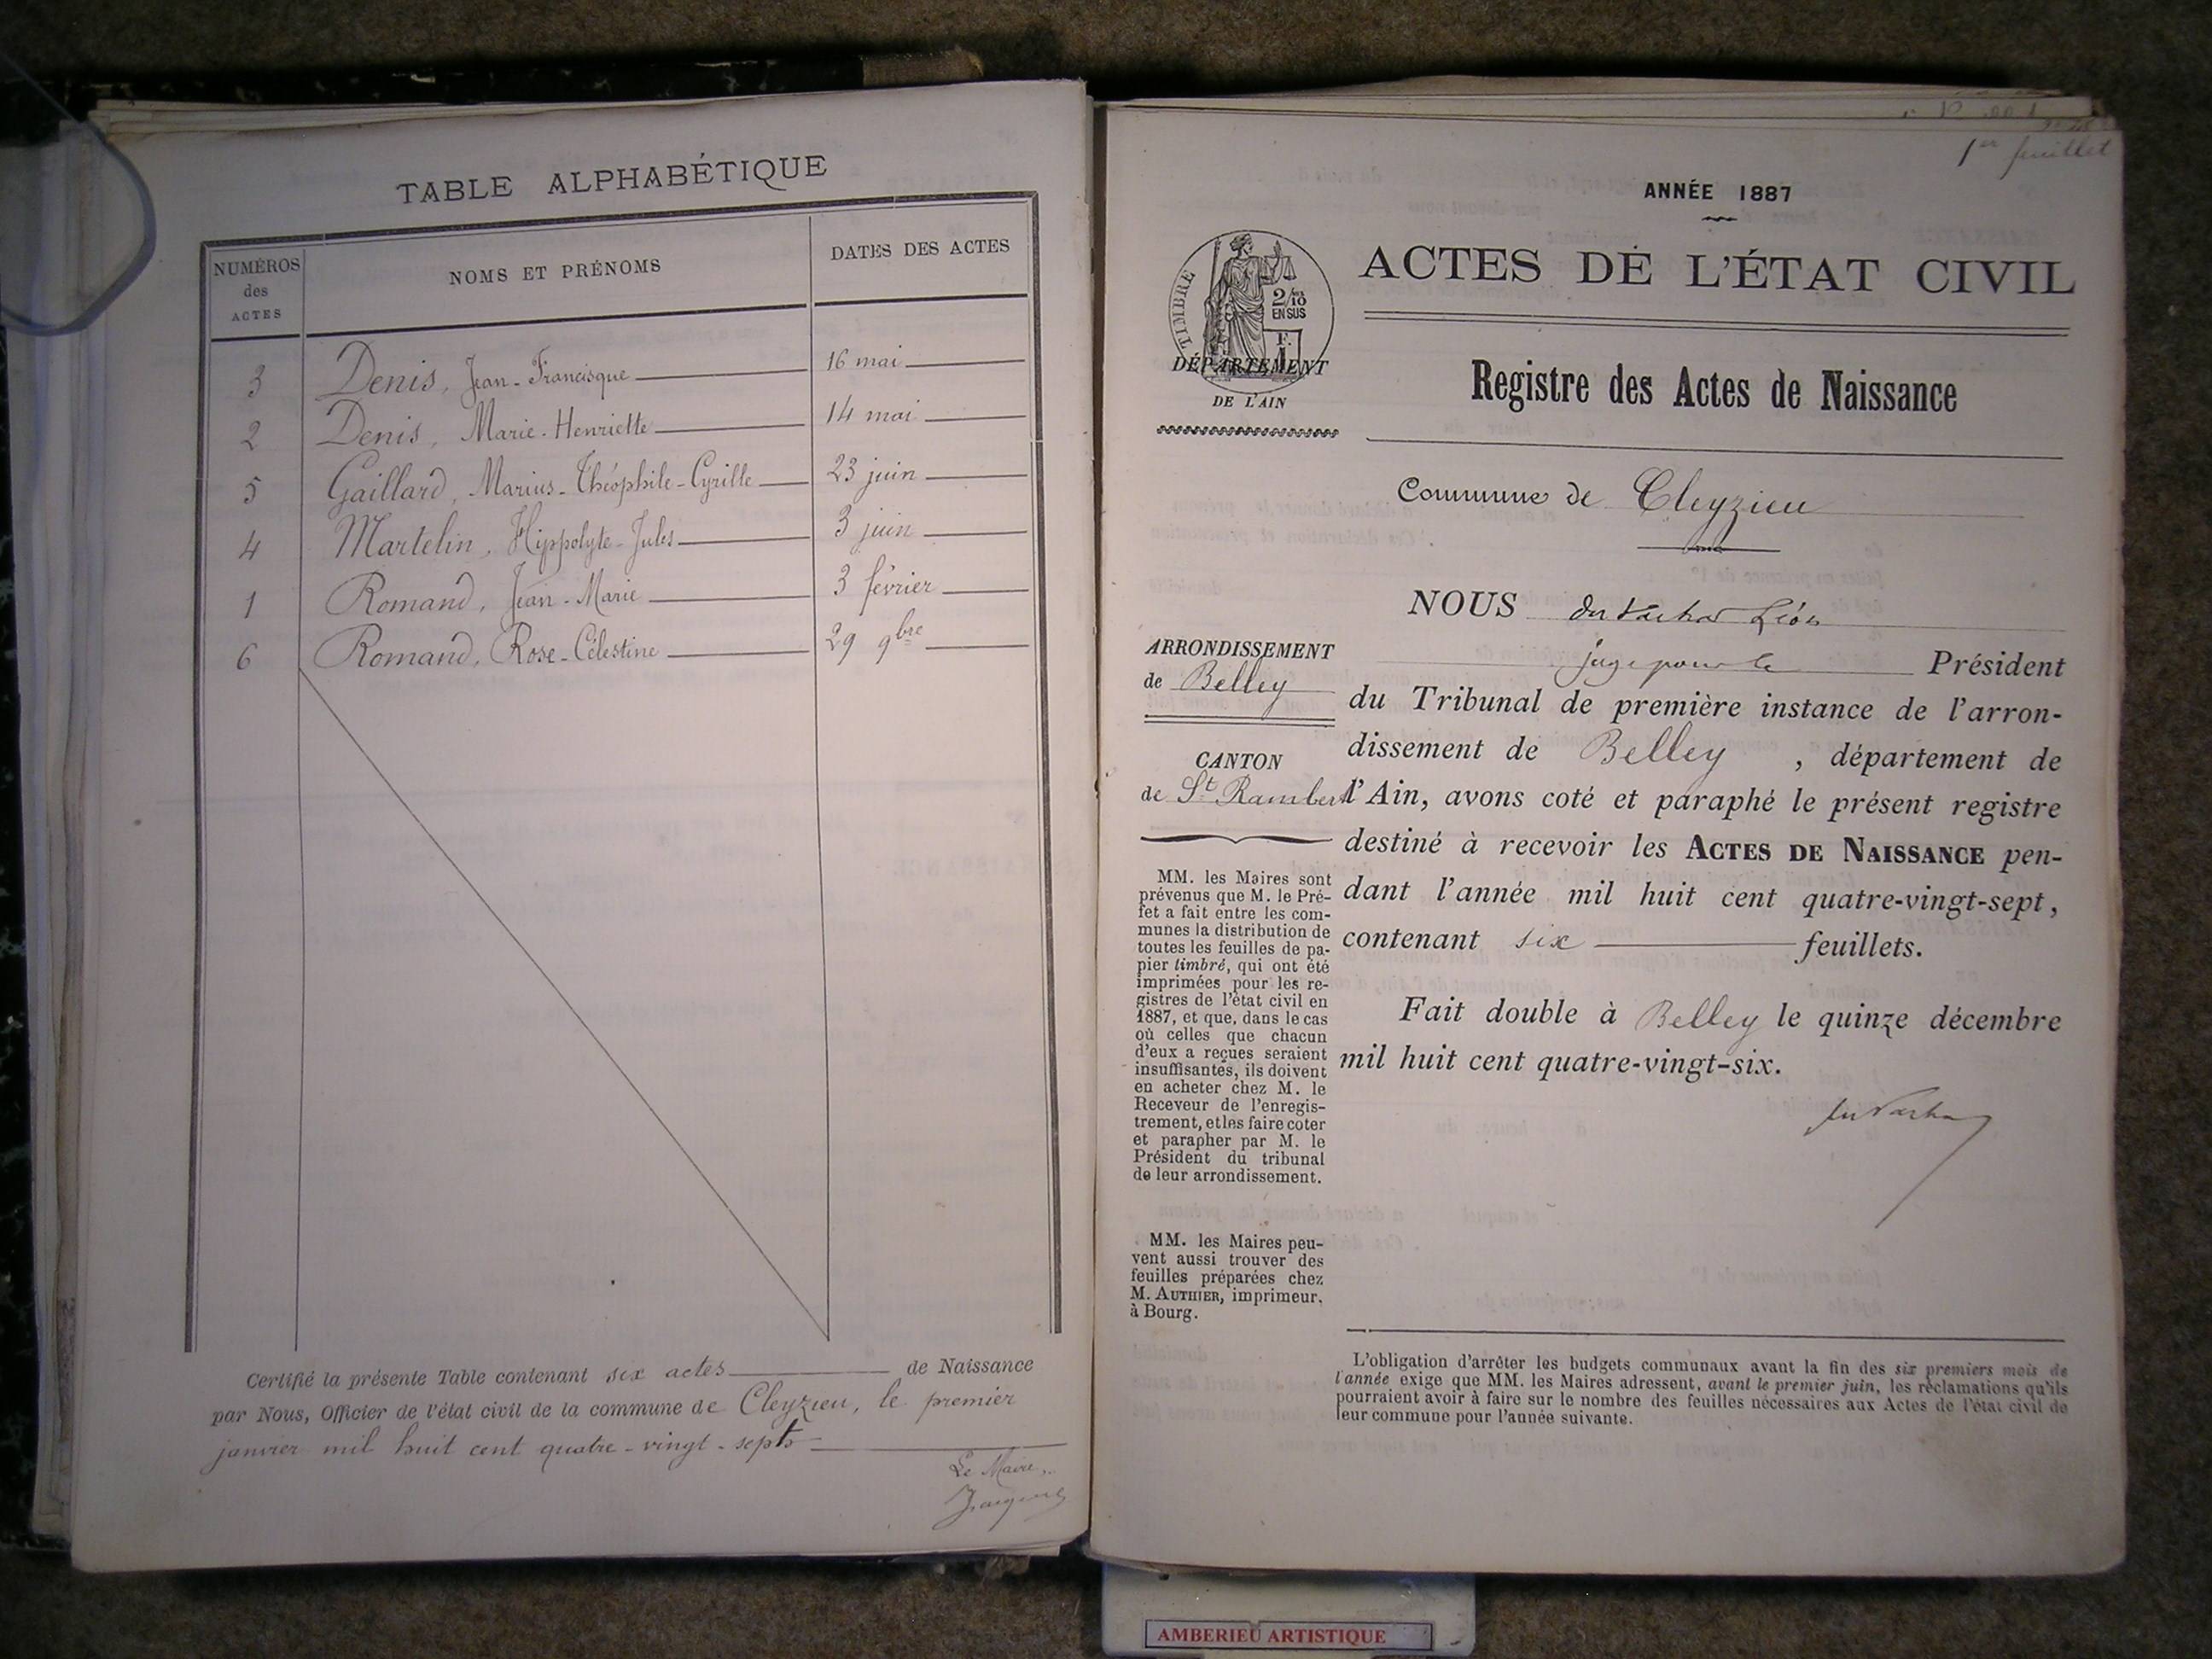 TABLE ALPHABÉTIQUE
NUMÉROS des ACTES
NOMS ET PRÉNOMS
DATES DES ACTES
3 Denis, Jean-Francisque 16 mai
2 Denis, Marie-Henriette 14 mai
5 Gaillard, Marius-Théophile-Cyrille 23 juin
4 Martelin, Hippolyte-Jules 3 juin
1 Romand, Jean-Marie 3 février
6 Romand, Rose-Célestine 29 9bre
Certifié la présente Table contenant six actes de Naissance
par Nous, Officier de l'état civil de la commune de Cleyzieu, le premier
janvier mil huit cent quatre-vingt-sept
Le Maire,
1er feuillet
ANNÉE 1887
ACTES DE L'ÉTAT CIVIL
TIMBRE
2/10
EN SUS
F.
1
DÉPARTEMENT
DE L'AIN
Registre des Actes de Naissance
Commune de Cleyzieu
ARRONDISSEMENT
de Belley
CANTON
de St Rambert
MM. les Maires sont
prévenus que M. le Pré-
fet a fait entre les com-
munes la distribution de
toutes les feuilles de pa-
pier timbré, qui ont été
imprimées pour les re-
gistres de l'état civil en
1887, et que, dans le cas
où celles que chacun
d'eux a reçues seraient
insuffisantes, ils doivent
en acheter chez M. le
Receveur de l'enregis-
trement, et les faire coter
et parapher par M. le
Président du tribunal
de leur arrondissement.
MM. les Maires peu-
vent aussi trouver des
feuilles préparées chez
M. AUTHIER, imprimeur,
à Bourg.
NOUS Léon
juge pour le Président
du Tribunal de première instance de l'arron-
dissement de Belley, département de
l'Ain, avons coté et paraphé le présent registre
destiné à recevoir les ACTES DE NAISSANCE pen-
dant l'année mil huit cent quatre-vingt-sept,
contenant six feuillets.
Fait double à Belley le quinze décembre
mil huit cent quatre-vingt-six.
L'obligation d'arrêter les budgets communaux avant la fin des six premiers mois de
l'année exige que MM. les Maires adressent, avant le premier juin, les réclamations qu'ils
pourraient avoir à faire sur le nombre des feuilles nécessaires aux Actes de l'état civil de
leur commune pour l'année suivante.
AMBERIEU ARTISTIQUE